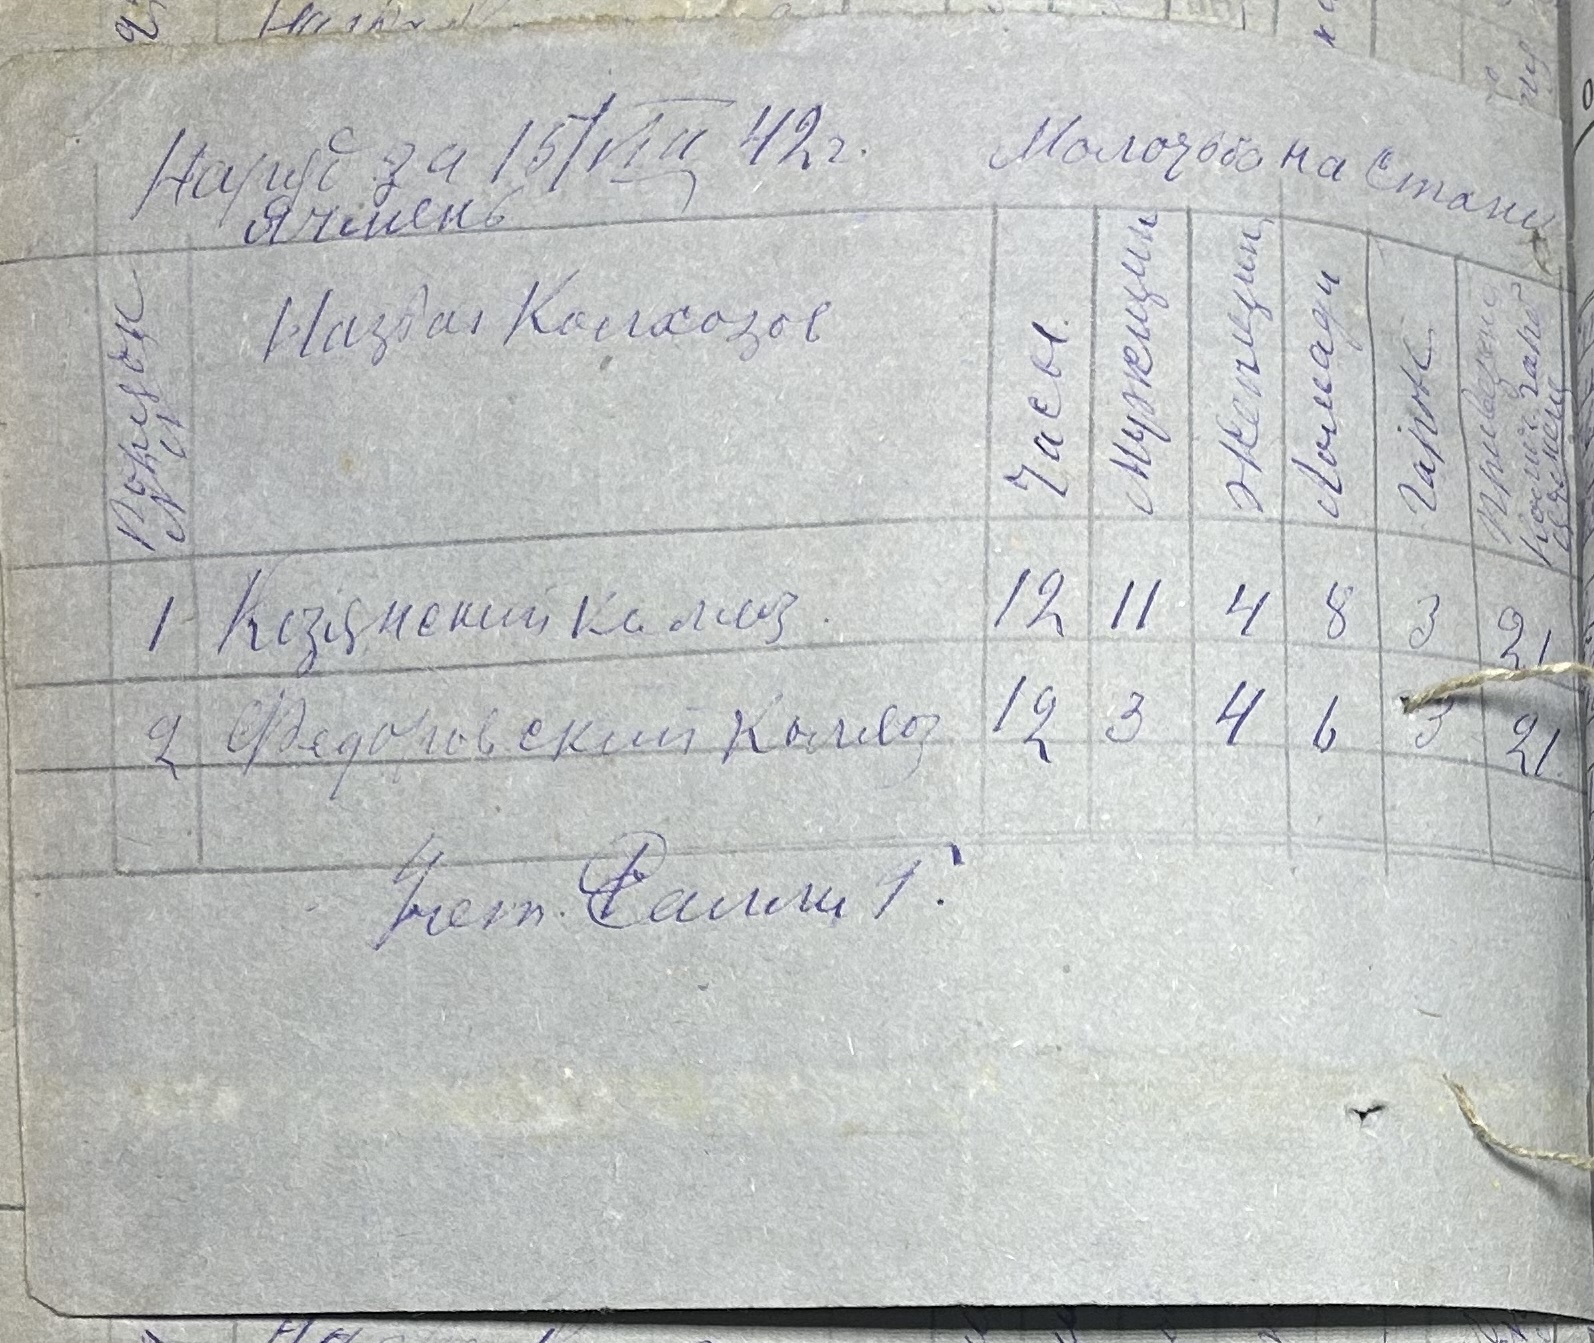 Наряд за 15/VIII 42г. Молотьба на Стани
Ячмень
Порядок № Назван Колхозов Часы Мужщин Женщин Лошади Гарбы
1 Козянский Колхоз 12 11 4 8 3 21
2 Федоровский Колхоз 12 3 4 6 3 21.
Учет. Г.